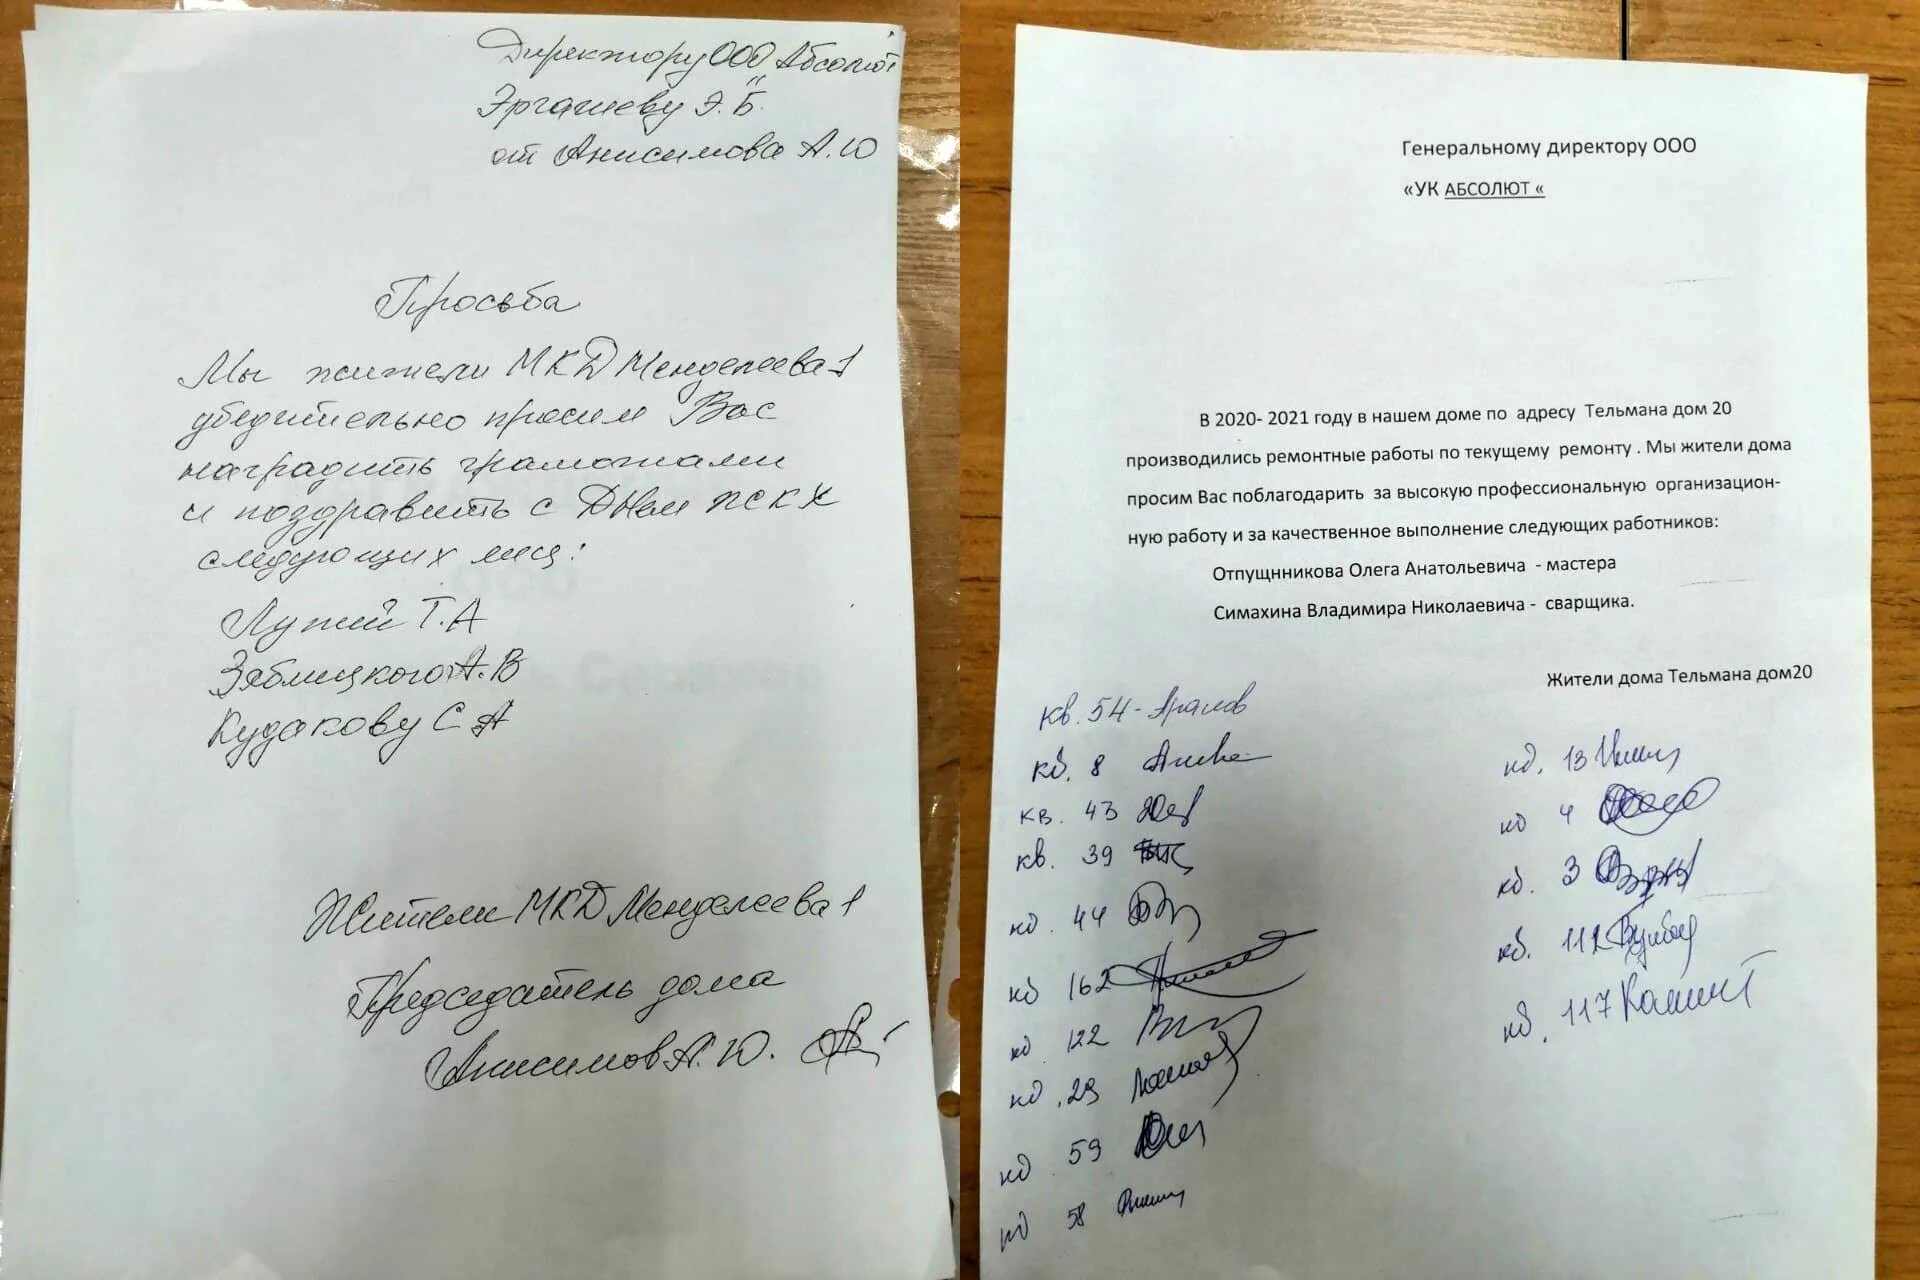 Директору ООО Абсолют
Эргашеву Э.Б.
от Анисимова А.Ю
Просьба
Мы жители МКД Менделеева 1
убедительно просим Вас
наградить грамотами
и поздравить с Днем ЖКХ
следующих лиц:
Лужий Т.А
Зяблицкого А.В
Кудакову С А
Жители МКД Менделеева 1
Председатель дома
Анисимов А.Ю.
Генеральному директору ООО
«УК АБСОЛЮТ «
В 2020- 2021 году в нашем доме по адресу Тельмана дом 20
производились ремонтные работы по текущему ремонту . Мы жители дома
просим Вас поблагодарить за высокую профессиональную организацион-
ную работу и за качественное выполнение следующих работников:
Отпущнникова Олега Анатольевича - мастера
Симахина Владимира Николаевича - сварщика.
Жители дома Тельмана дом20
кв. 54-
кв. 8
кв. 43
кв. 39
кв. 44
кв 162
кв 122
кв . 29
кв 59
кв 58
кв. 13
кв 4
кв. 3
кв. 112
кв. 117